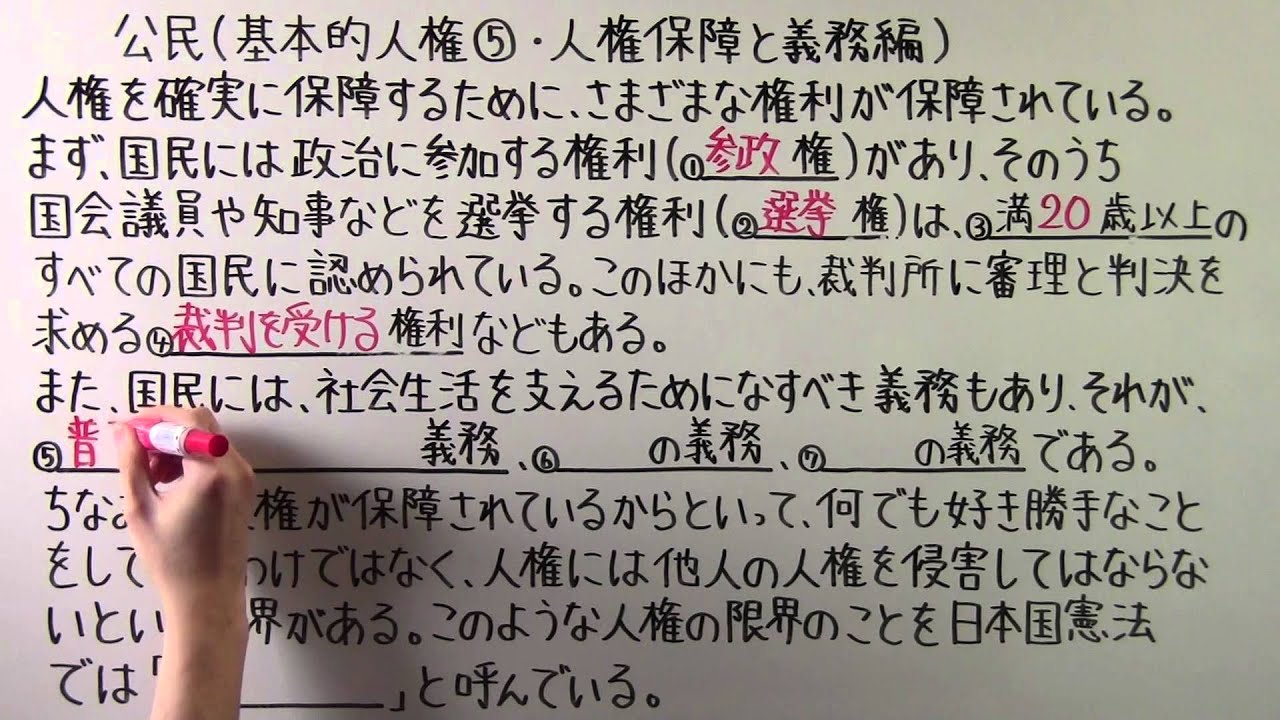 公民(基本的人権⑤・人権保障と義務編)
人権を確実に保障するために、さまざまな権利が保障されている。
まず、国民には政治に参加する権利(①参政権)があり、そのうち
国会議員や知事などを選挙する権利(②選挙権)は、③満20歳以上の
すべての国民に認められている。このほかにも、裁判所に審理と判決を
求める④裁判を受ける権利などもある。
また、国民には、社会生活を支えるためになすべき義務もあり、それが、
⑤普 義務、⑥ の義務、⑦ の義務である。
ちな 人権が保障されているからといって、何でも好き勝手なこと
をして わけではなく、人権には他人の人権を侵害してはならな
いとい 界がある。このような人権の限界のことを日本国憲法
では「 」と呼んでいる。